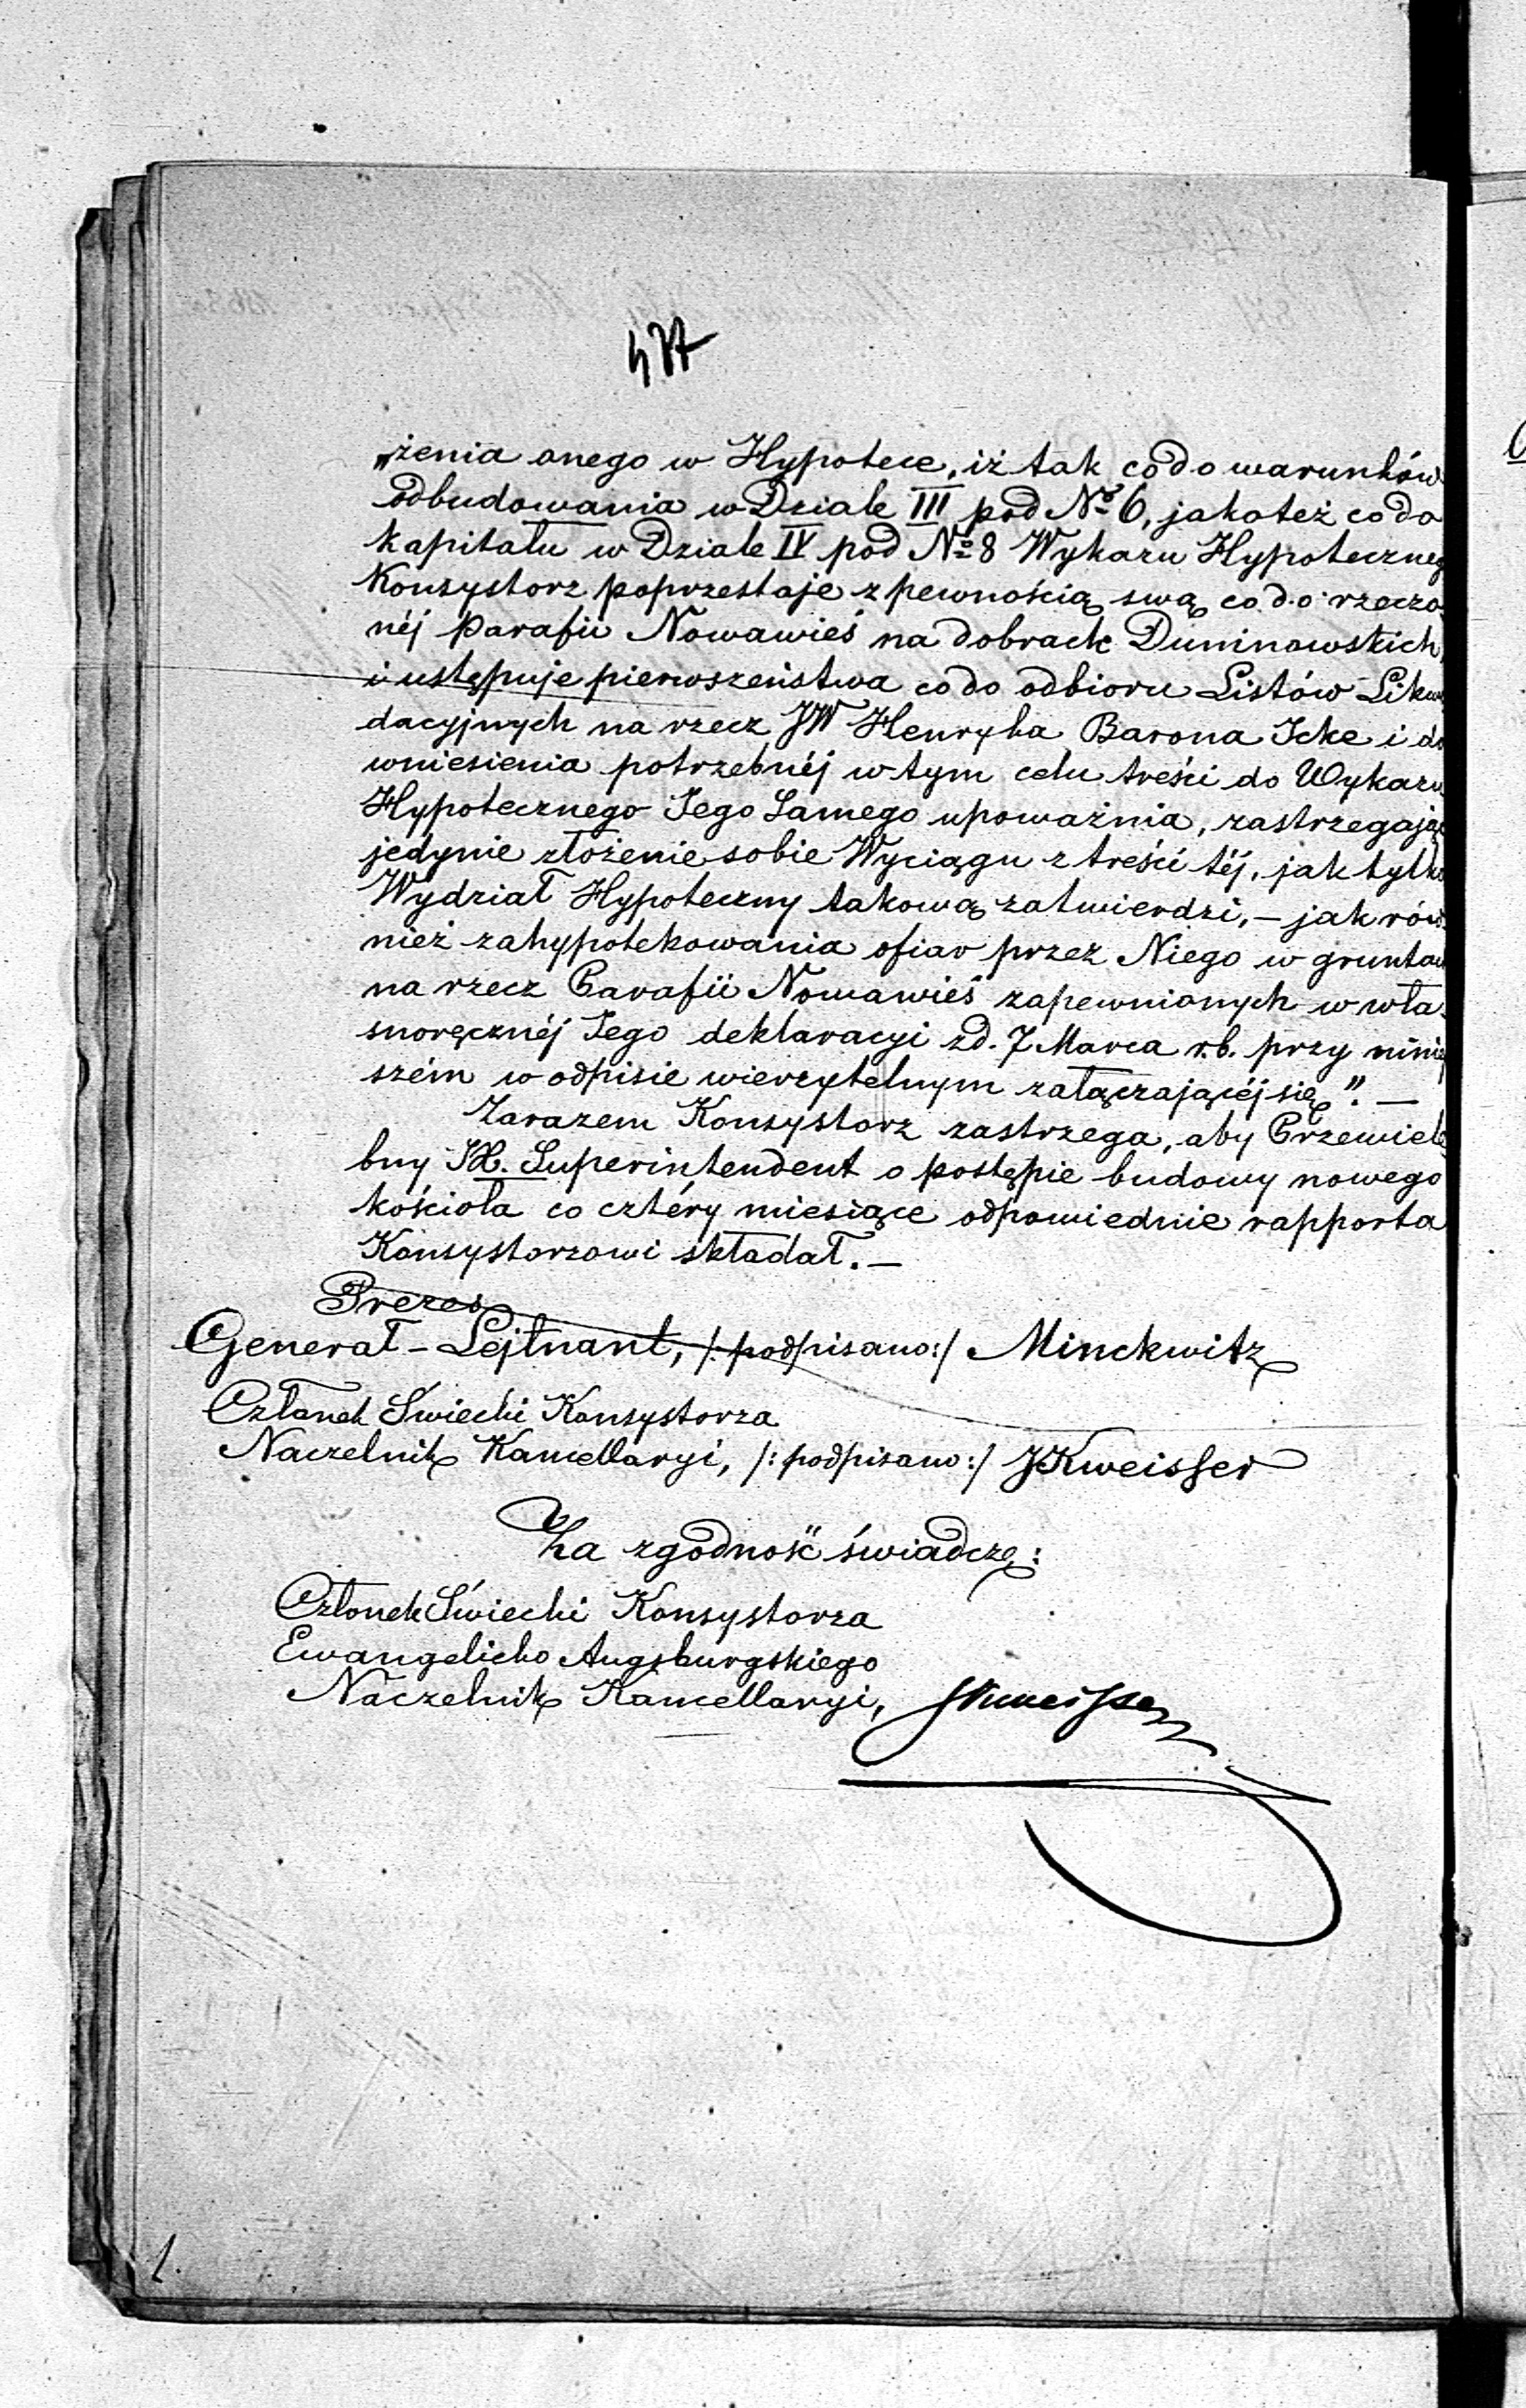 477
„żenia onego w Hypotece, iż tak co do warunków
odbudowania w Dziale III pod № 6, jako też co do
kapitału w Dziale IV pod № 8 Wykazu Hypoteczneg
Konsystorz poprzestaje z pewnością swą co do rzeczo
néj Parafii Nowawieś na dobrach Duninowskich,
i ustępuje pierwszeństwa co do odbioru Listów Likwi
dacyjnych na rzecz JW Henryka Barona Icke i do
wniesienia potrzebnéj w tym celu treści do Wykazu
Hypotecznego Jego Samego upoważnia, zastrzegając
jedynie złożenie sobie Wyciągu z treści téj, jak tylko
Wydział Hypoteczny takową zatwierdzi, — jak rów
nież zahypotekowania ofiar przez Niego w gruntach
na rzecz Parafii Nowawieś zapewnionych w wła
snoręcznéj Jego deklaracyi z d. 7 Marca r. b. przy niniej
szém w odpisie wierzytelnym załączającéj się". —
Zarazem Konsystorz zastrzega, aby Przewiele
bny JX. Superintendent o postępie budowy nowego
kościoła co cztéry miesiące odpowiednie rapporta
Konsystorzowi składał. —
Prezes
Generał-Lejtnant, /:podpisano:/ Minckwitz
Członek Świecki Konsystorza
Naczelnik Kancellaryi, /:podpisano:/ JKweisser
Za zgodność świadczę:
Członek Świecki Konsystorza
Ewangelicko Augsburgskiego
Naczelnik Kancellaryi, JKweisser